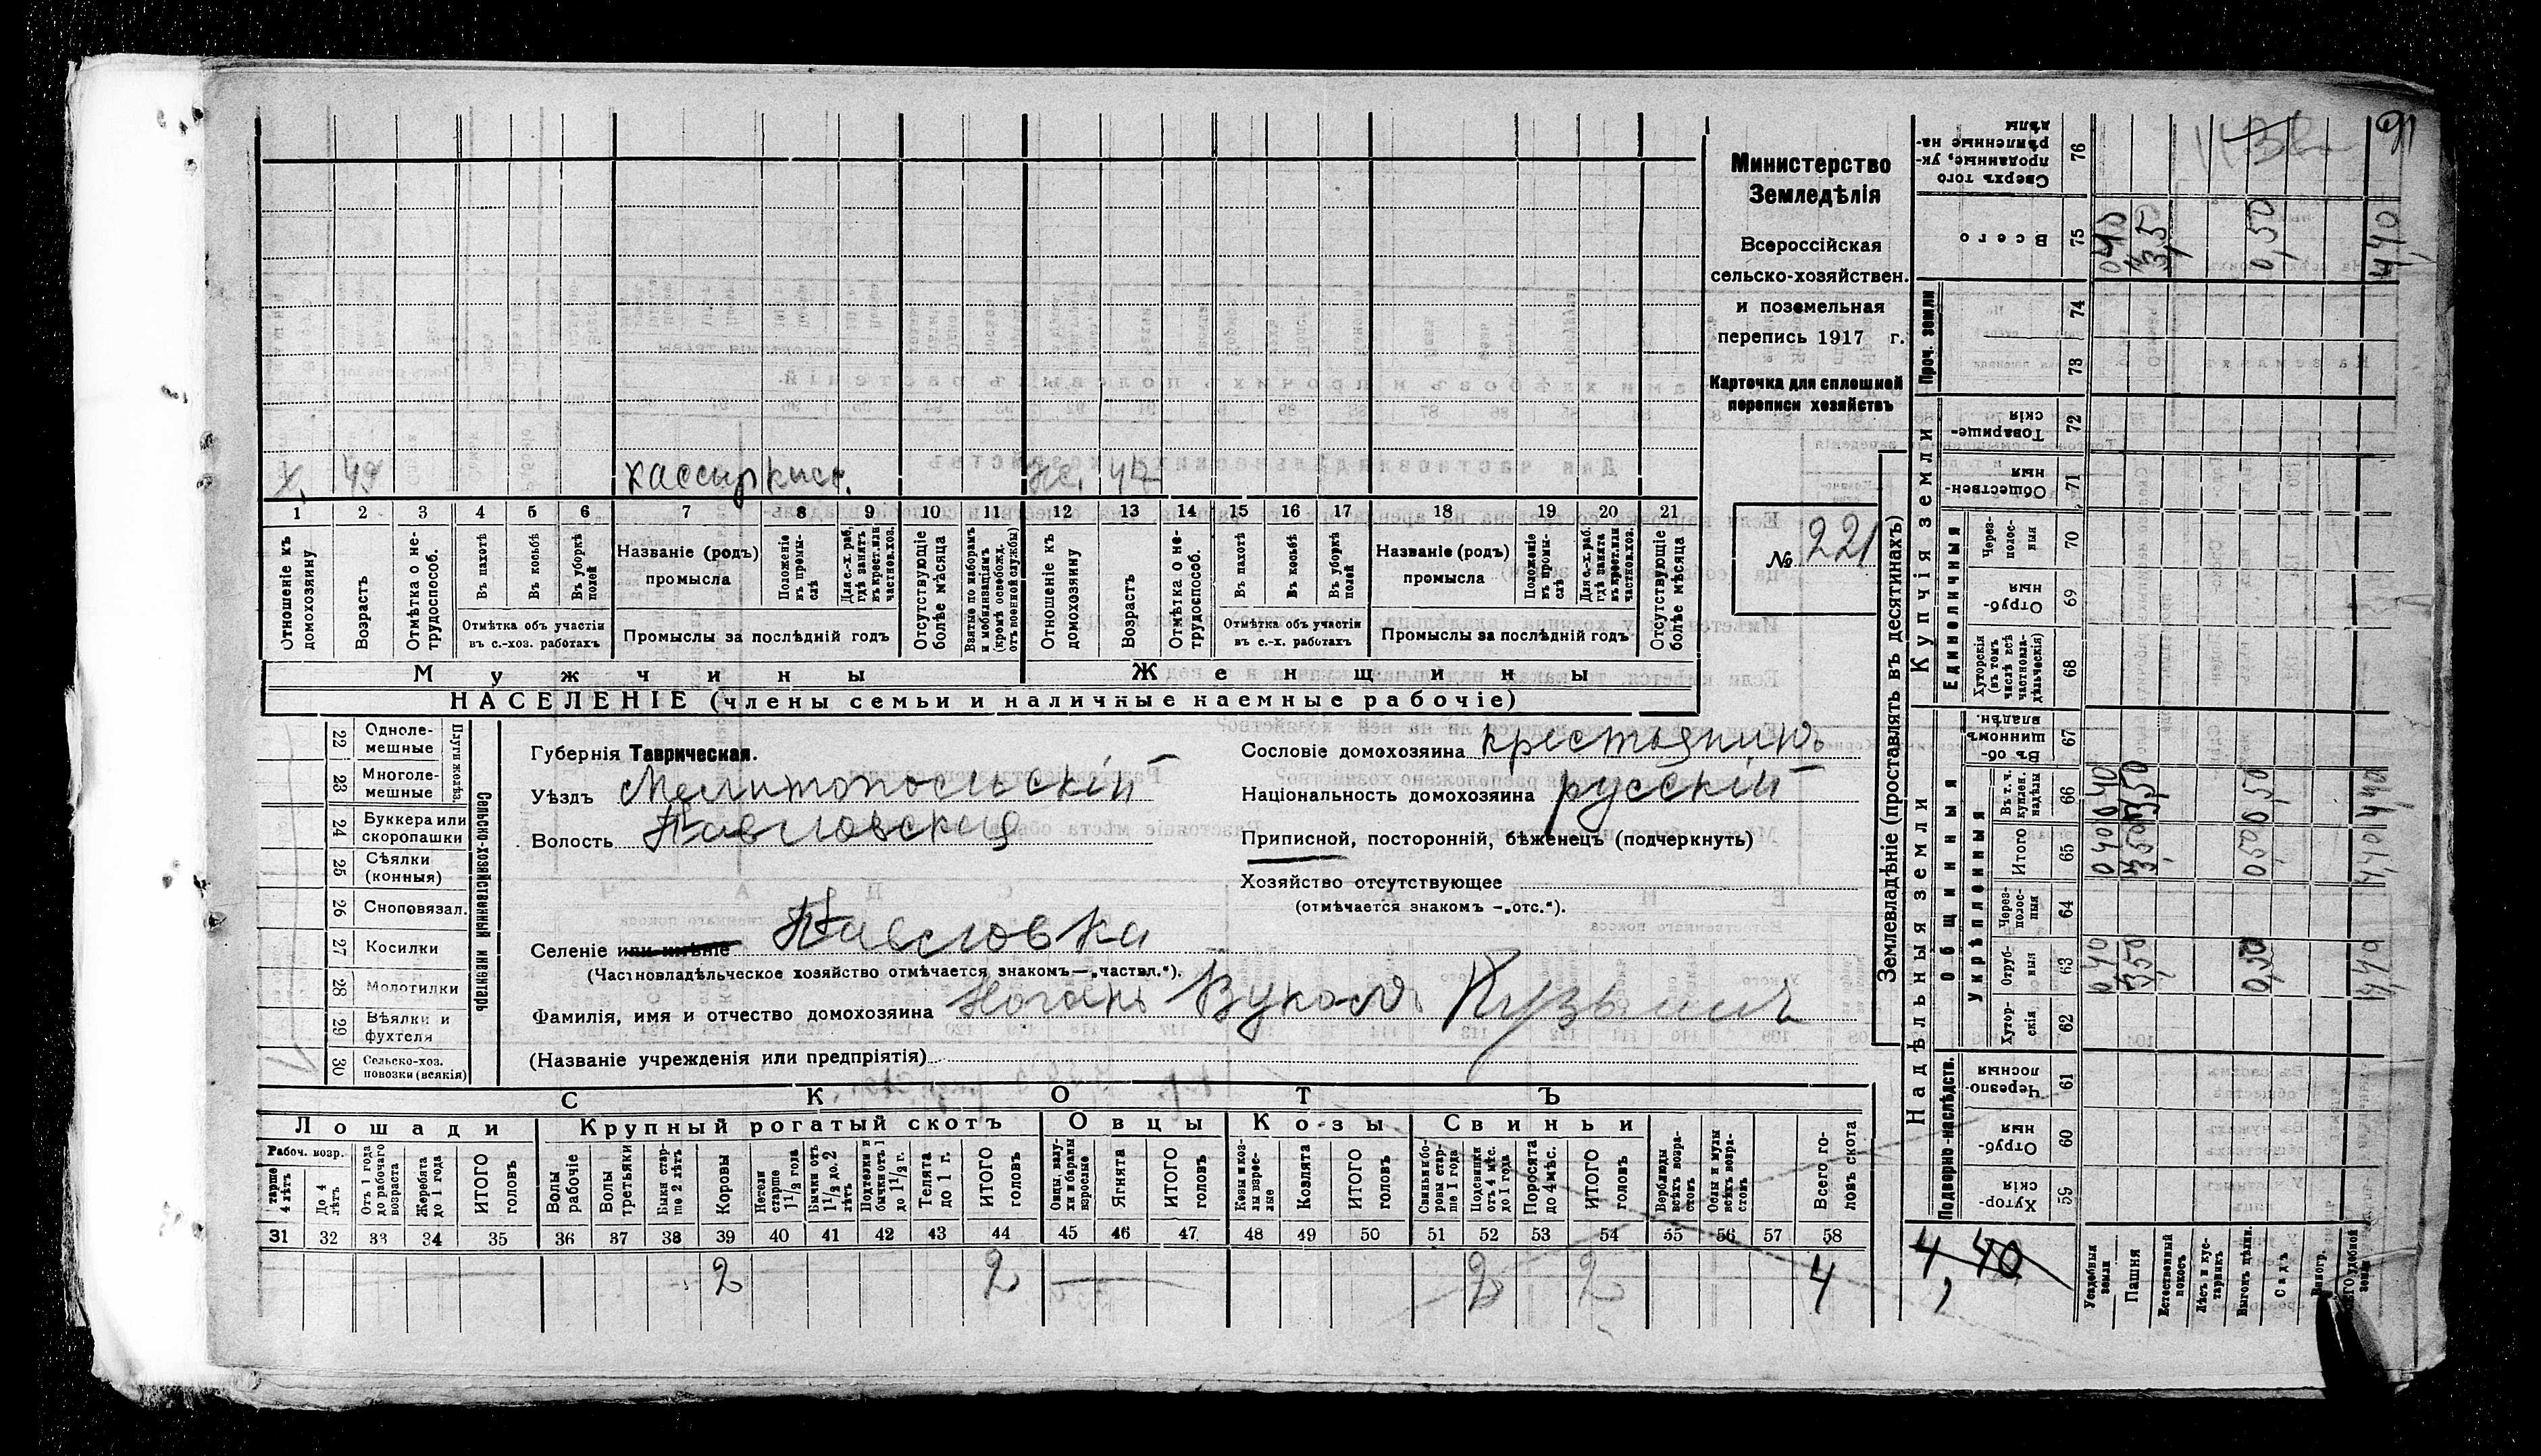 91
Министерство
Земледѣлія
Всероссійская
сельско-хозяйствен.
и поземельная
перепись 1917 г.
Карточка для сплошной
переписи хозяйствъ
№ 221
х. 49 жс. 47
1 2 3 4 5 6 7 8 9 10 11 12 13 14 15 16 17 18 19 20 21
Отношеніе къ домохозяину
Возрастъ
Отмѣтка о не-трудоспособ.
Въ пахотѣ
Въ косьбѣ
Въ уборкѣ полей
Отмѣтка объ участіи
въ с.-хоз. работахъ
Названіе (родъ)
промысла
Положеніе въ промы-слѣ
Для с.-х. раб. гдѣ занятъ въ крест. или частнов. хоз.
Промыслы за послѣдній годъ
Отсутствующіе болѣе мѣсяца
Взятые по наборамъ и мобилизаціямъ (кромѣ освобожд. отъ военной службы)
Отношеніе къ домохозяину
Возрастъ
Отмѣтка о не-трудоспособ.
Въ пахотѣ
Въ косьбѣ
Въ уборкѣ полей
Отмѣтка объ участіи
въ с.-х. работахъ
Названіе (родъ)
промысла
Положеніе въ промы-слѣ
Для с.-х. раб. гдѣ занята въ крест. или частнов. хоз.
Промыслы за послѣдній годъ
Отсутствующіе болѣе мѣсяца
Мужчины Женщины
НАСЕЛЕНІЕ (члены семьи и наличные наемные рабочіе)
22 Одноле-мешные
23 Многоле-мешные
Плуги желѣз.
24 Буккера или скоропашки
25 Сѣялки (конныя)
26 Сноповязал.
27 Косилки
28 Молотилки
29 Вѣялки и фухтеля
30 Сельско-хоз. повозки (всякія)
Сельско-хозяйственный инвентарь
Губернія Таврическая.
Уѣздъ Мелитопольскій
Волость Павловская
Сословіе домохозяина крестьянинъ
Національность домохозяина русскій
Приписной, посторонній, бѣженецъ (подчеркнуть)
Хозяйство отсутствующее
(отмѣчается знакомъ —„отс.“).
Селеніе или имѣніе Павловка
(Частновладѣльческое хозяйство отмѣчается знакомъ—„частвл.“).
Фамилія, имя и отчество домохозяина Вуколъ Кузьмич
(Названіе учрежденія или предпріятія)
СКОТЪ
Лошади Крупный рогатый скотъ Овцы Козы Свиньи
Рабоч. возр.
тарше 4 лѣтъ
До 4 лѣтъ
Отъ 1 года до рабочаго возраста
Жеребята до 1 года
ИТОГО головъ
Волы рабочіе
Волы третьяки
Быки стар-ше 2 лѣтъ
Коровы
Нетели старше 1 1/2 года
Бычки отъ 1 1/2 до 2 лѣтъ
Подтелки и бычки отъ 1 до 1 1/2 г.
Телята до 1 г.
ИТОГО головъ
Овцы, валу-хи и бараны взрослые
Ягнята
ИТОГО головъ
Козы и коз-лы взрос-лые
Козлята
ИТОГО головъ
Свиньи бо-ровы стар-ше 1 года
Подсвинки отъ 4 мѣс. до 1 года
Поросята до 4 мѣс.
ИТОГО головъ
Верблюды всѣхъ возра-стовъ
Ослы и мулы всѣхъ возра-стовъ
Всего го-ловъ скота
31 32 33 34 35 36 37 38 39 40 41 42 43 44 45 46 47 48 49 50 51 52 53 54 55 56 57 58
2 2 2 2 4
Землевладѣніе (проставлять въ десятинахъ)
Сверхъ того проданные, ук-рѣпленные на-дѣлы 76
Всего 75 0,40 3,50 0,50 4,40
Проч. земли 74 73
Купчія земли
Товарище-скія 72
Обществен-ныя 71
Единоличныя
Черезполос-ныя 70
Отруб-ныя 69
Хуторскія (въ томъ числѣ всѣ частновла-дѣльческія) 68
Надѣльныя земли
Общинныя
Въ об-щинномъ владѣн. 67
Укрѣпленныя
Въ т. ч. куплен. надѣлы 66 0,40 3,50 0,50 4,40
Итого 65 0,40 3,50 0,50 4,40
Через-полос-ныя 64
Отруб-ныя 63 0,40 3,50 0,50 4,40
Хутор-скія 62
Подворно-наслѣдств.
Черезпо-лосныя 61
Отруб-ныя 60
Хутор-скія 59
4,40
Усадебныя земли
Пашня
Естественный покосъ
Лѣсъ и кус-тарникъ
Выгонъ цѣлин.
Садъ
Виногр.
удобной земли